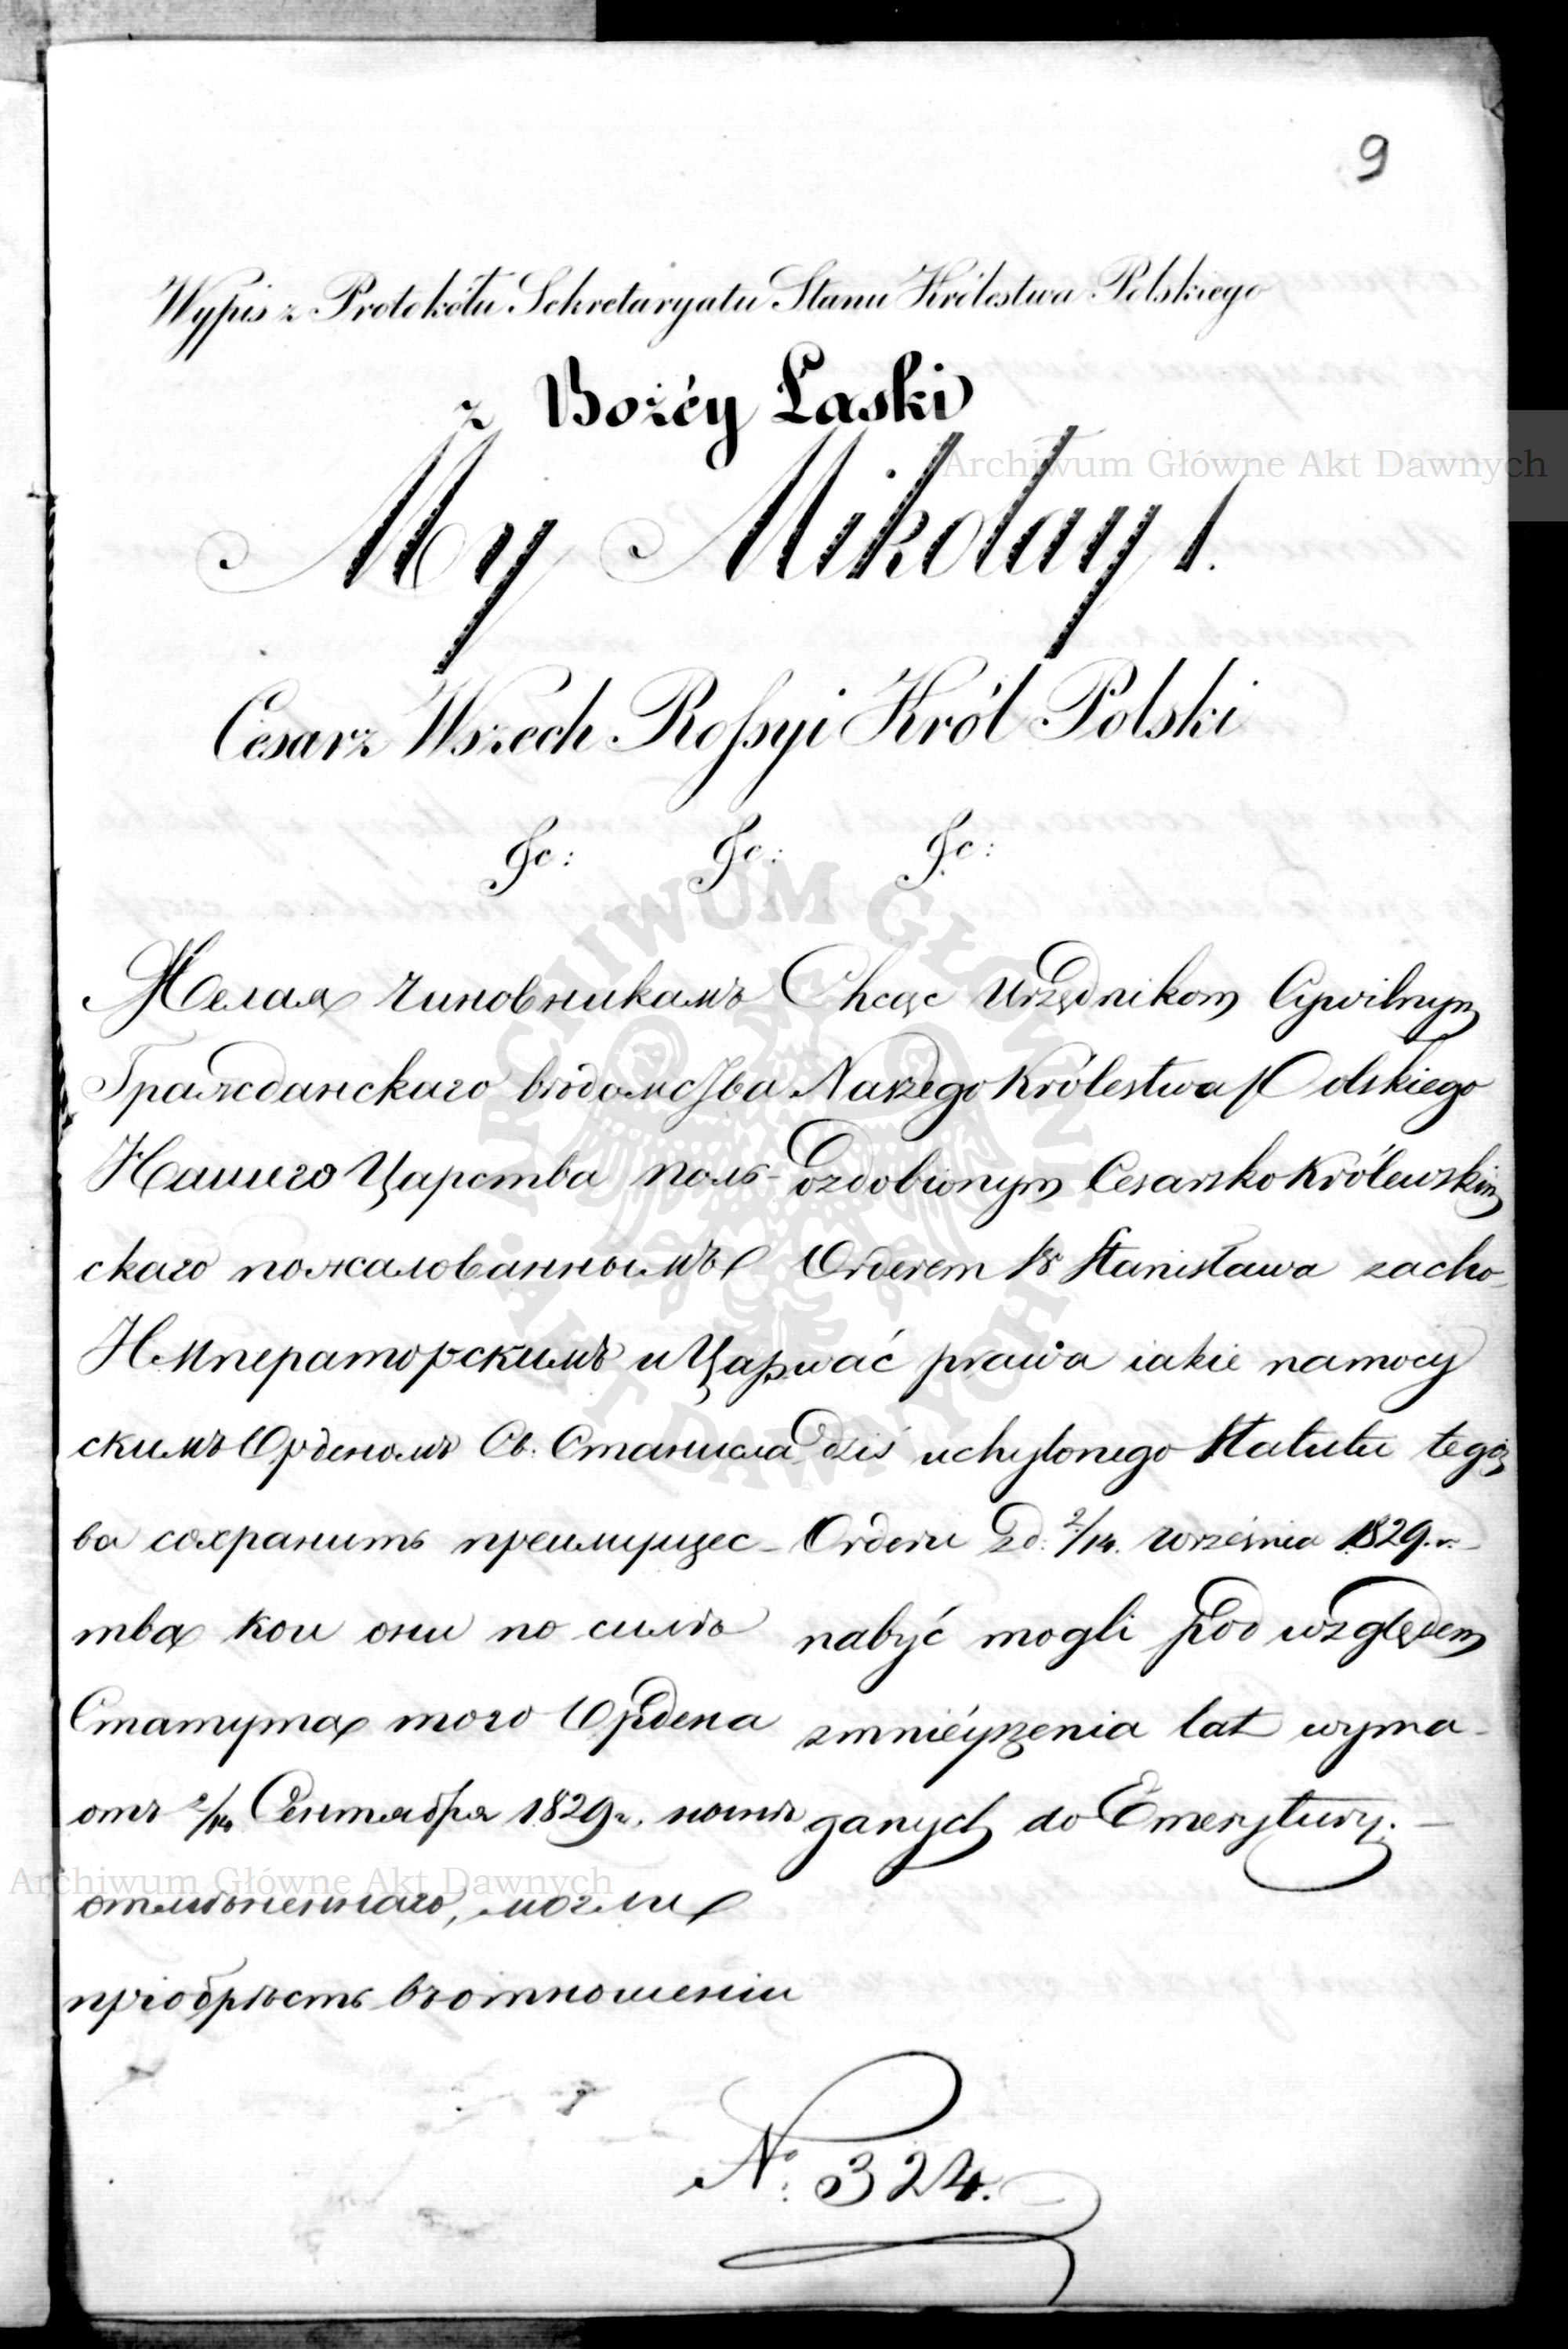 9
Wypis z Protokółu Sekretaryatu Stanu Królestwa Polskiego
z Bożéy Łaski
My Mikołay I.
Cesarz Wszech Rossyi Król Polski
&c: &c: &c:
Желая чиновникамъ
Гражданскаго вѣдомства
Нашего Царства поль-
скаго пожалованнымъ
Императорскимъ и Цар-
скимъ Орденомъ Св. Станисла
ва сохранить преимущес-
тва кои они по силѣ
Статута того Ордена
отъ 2/14 Сентября 1829 г. нынѣ
отмѣненнаго, могли
пріобрѣсть въ отношеніи
Chcąc Urzędnikom Cywilnym
Naszego Królestwa Polskiego
ozdobionym Cesarsko Królewskim
Orderem Sº Stanisława zacho-
wać prawa iakie na mocy
dziś uchylonego Statutu tegoż
Orderu z d: 2/14. września 1829. r.
nabyć mogli pod względem
zmniéyszenia lat wyma-
ganych do Emerytury. —
Nº: 324.
Archiwum Główne Akt Dawnych
Archiwum Główne Akt Dawnych
ARCHIWUM GŁÓWNE
AKT DAWNYCH